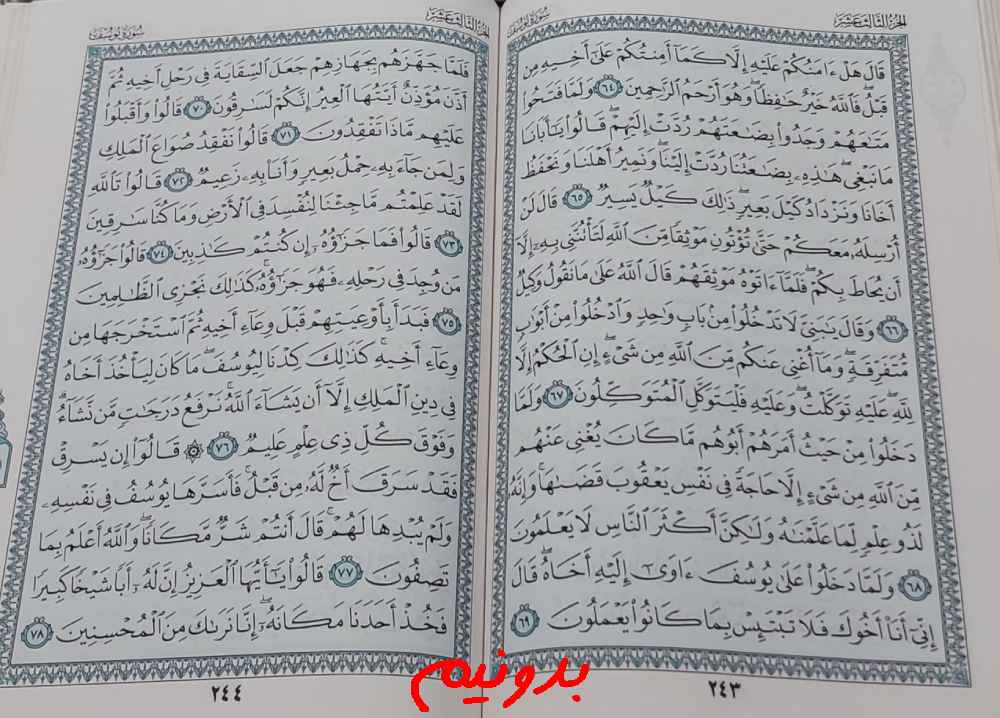 الجزء الثالث عشر
سورة يوسف
قَالَ هَلْ ءَامَنُكُمْ عَلَيْهِ إِلَّا كَمَآ أَمِنتُكُمْ عَلَىٰٓ أَخِيهِ مِن
قَبْلُ فَٱللَّهُ خَيْرٌ حَٰفِظًا وَهُوَ أَرْحَمُ ٱلرَّٰحِمِينَ ٦٤ وَلَمَّا فَتَحُوا۟
مَتَٰعَهُمْ وَجَدُوا۟ بِضَٰعَتَهُمْ رُدَّتْ إِلَيْهِمْ قَالُوا۟ يَٰٓأَبَانَا
مَا نَبْغِى هَٰذِهِۦ بِضَٰعَتُنَا رُدَّتْ إِلَيْنَا وَنَمِيرُ أَهْلَنَا وَنَحْفَظُ
أَخَانَا وَنَزْدَادُ كَيْلَ بَعِيرٍ ذَٰلِكَ كَيْلٌ يَسِيرٌ ٦٥ قَالَ لَنْ
أُرْسِلَهُۥ مَعَكُمْ حَتَّىٰ تُؤْتُونِ مَوْثِقًا مِّنَ ٱللَّهِ لَتَأْتُنَّنِى بِهِۦٓ إِلَّآ
أَن يُحَاطَ بِكُمْ فَلَمَّآ ءَاتَوْهُ مَوْثِقَهُمْ قَالَ ٱللَّهُ عَلَىٰ مَا نَقُولُ وَكِيلٌ
٦٦ وَقَالَ يَٰبَنِىَّ لَا تَدْخُلُوا۟ مِنۢ بَابٍ وَٰحِدٍ وَٱدْخُلُوا۟ مِنْ أَبْوَٰبٍ
مُّتَفَرِّقَةٍ وَمَآ أُغْنِى عَنكُم مِّنَ ٱللَّهِ مِن شَىْءٍ إِنِ ٱلْحُكْمُ إِلَّا
لِلَّهِ عَلَيْهِ تَوَكَّلْتُ وَعَلَيْهِ فَلْيَتَوَكَّلِ ٱلْمُتَوَكِّلُونَ ٦٧ وَلَمَّا
دَخَلُوا۟ مِنْ حَيْثُ أَمَرَهُمْ أَبُوهُم مَّا كَانَ يُغْنِى عَنْهُم
مِّنَ ٱللَّهِ مِن شَىْءٍ إِلَّا حَاجَةً فِى نَفْسِ يَعْقُوبَ قَضَىٰهَا وَإِنَّهُۥ
لَذُو عِلْمٍ لِّمَا عَلَّمْنَٰهُ وَلَٰكِنَّ أَكْثَرَ ٱلنَّاسِ لَا يَعْلَمُونَ
٦٨ وَلَمَّا دَخَلُوا۟ عَلَىٰ يُوسُفَ ءَاوَىٰٓ إِلَيْهِ أَخَاهُ قَالَ
إِنِّىٓ أَنَا۠ أَخُوكَ فَلَا تَبْتَئِسْ بِمَا كَانُوا۟ يَعْمَلُونَ ٦٩
٢٤٣
الجزء الثالث عشر
سورة يوسف
فَلَمَّا جَهَّزَهُم بِجَهَازِهِمْ جَعَلَ ٱلسِّقَايَةَ فِى رَحْلِ أَخِيهِ ثُمَّ
أَذَّنَ مُؤَذِّنٌ أَيَّتُهَا ٱلْعِيرُ إِنَّكُمْ لَسَٰرِقُونَ ٧٠ قَالُوا۟ وَأَقْبَلُوا۟
عَلَيْهِم مَّاذَا تَفْقِدُونَ ٧١ قَالُوا۟ نَفْقِدُ صُوَاعَ ٱلْمَلِكِ
وَلِمَن جَآءَ بِهِۦ حِمْلُ بَعِيرٍ وَأَنَا۠ بِهِۦ زَعِيمٌ ٧٢ قَالُوا۟ تَٱللَّهِ
لَقَدْ عَلِمْتُم مَّا جِئْنَا لِنُفْسِدَ فِى ٱلْأَرْضِ وَمَا كُنَّا سَٰرِقِينَ
٧٣ قَالُوا۟ فَمَا جَزَٰٓؤُهُۥٓ إِن كُنتُمْ كَٰذِبِينَ ٧٤ قَالُوا۟ جَزَٰٓؤُهُۥ
مَن وُجِدَ فِى رَحْلِهِۦ فَهُوَ جَزَٰٓؤُهُۥ كَذَٰلِكَ نَجْزِى ٱلظَّٰلِمِينَ
٧٥ فَبَدَأَ بِأَوْعِيَتِهِمْ قَبْلَ وِعَآءِ أَخِيهِ ثُمَّ ٱسْتَخْرَجَهَا مِن
وِعَآءِ أَخِيهِ كَذَٰلِكَ كِدْنَا لِيُوسُفَ مَا كَانَ لِيَأْخُذَ أَخَاهُ
فِى دِينِ ٱلْمَلِكِ إِلَّآ أَن يَشَآءَ ٱللَّهُ نَرْفَعُ دَرَجَٰتٍ مَّن نَّشَآءُ
وَفَوْقَ كُلِّ ذِى عِلْمٍ عَلِيمٌ ٧٦ ۞ قَالُوٓا۟ إِن يَسْرِقْ
فَقَدْ سَرَقَ أَخٌ لَّهُۥ مِن قَبْلُ فَأَسَرَّهَا يُوسُفُ فِى نَفْسِهِۦ
وَلَمْ يُبْدِهَا لَهُمْ قَالَ أَنتُمْ شَرٌّ مَّكَانًا وَٱللَّهُ أَعْلَمُ بِمَا
تَصِفُونَ ٧٧ قَالُوا۟ يَٰٓأَيُّهَا ٱلْعَزِيزُ إِنَّ لَهُۥٓ أَبًا شَيْخًا كَبِيرًا
فَخُذْ أَحَدَنَا مَكَانَهُۥٓ إِنَّا نَرَىٰكَ مِنَ ٱلْمُحْسِنِينَ ٧٨
٢٤٤
بدونیم